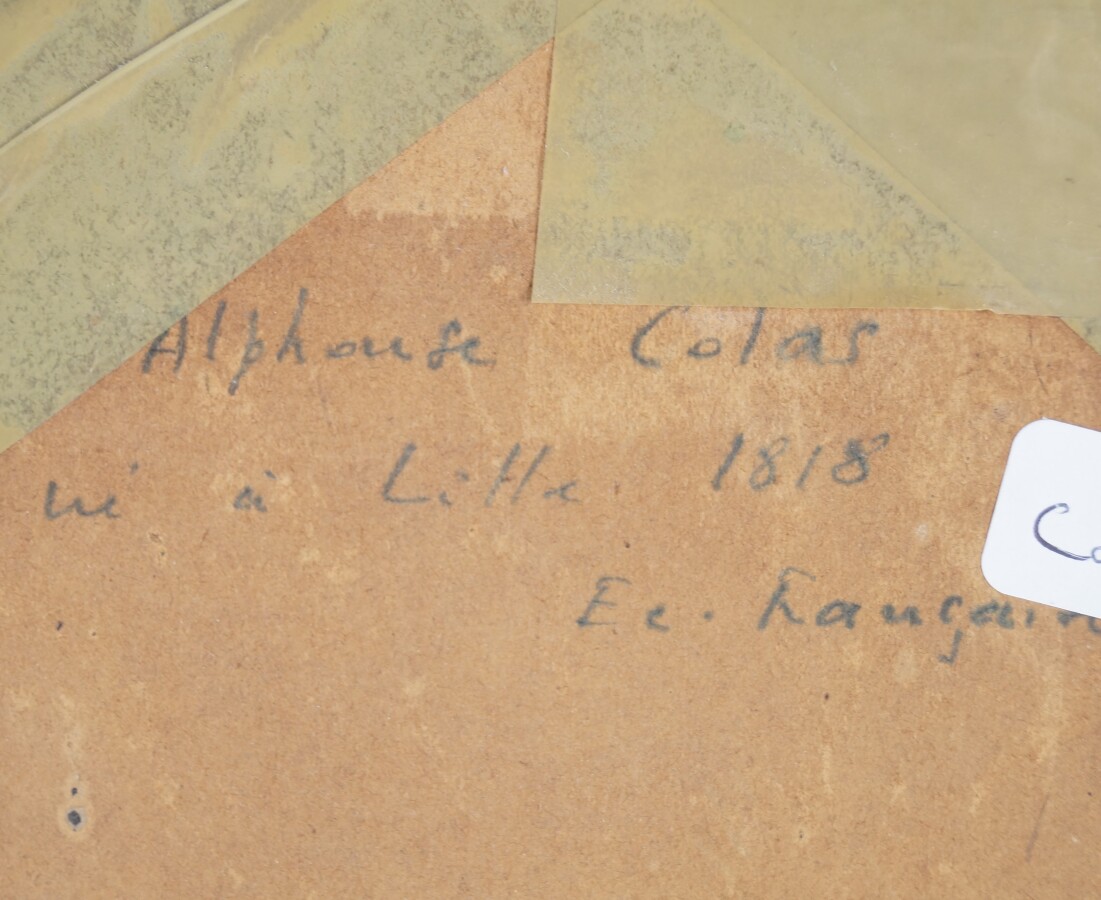 Alphonse Colas
né à Lille 1818
Ec. Française